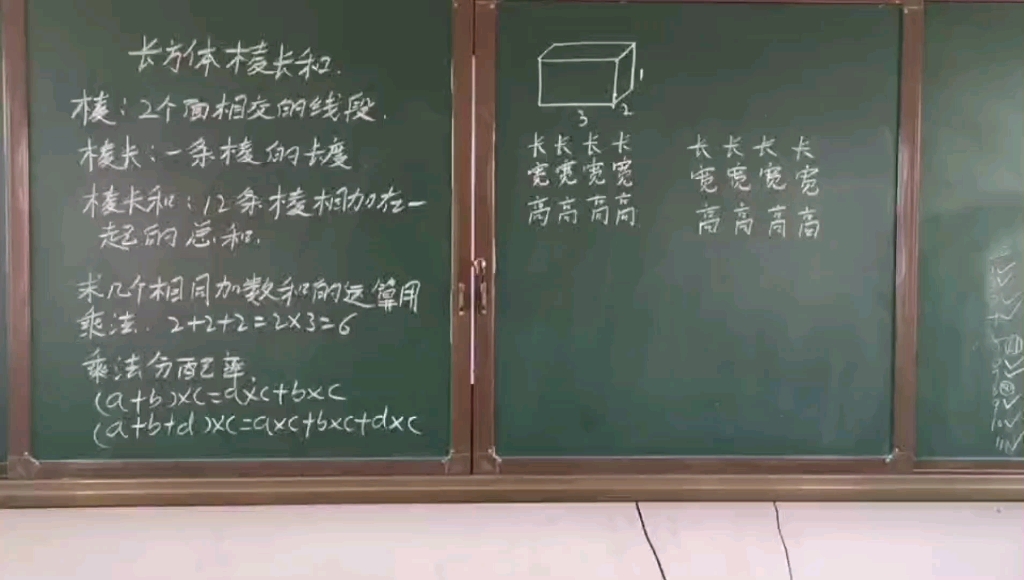 长方体棱长和.
棱:2个面相交的线段.
棱长:一条棱的长度
棱长和:12条棱相加在一
起的总和.
求几个相同加数和的运算用
乘法. 2+2+2=2×3=6
乘法分配率
(a+b)×c=a×c+b×c
(a+b+d)×c=a×c+b×c+d×c
1
2
3
长长长长
宽宽宽宽
高高高高
长长长长
宽宽宽宽
高高高高